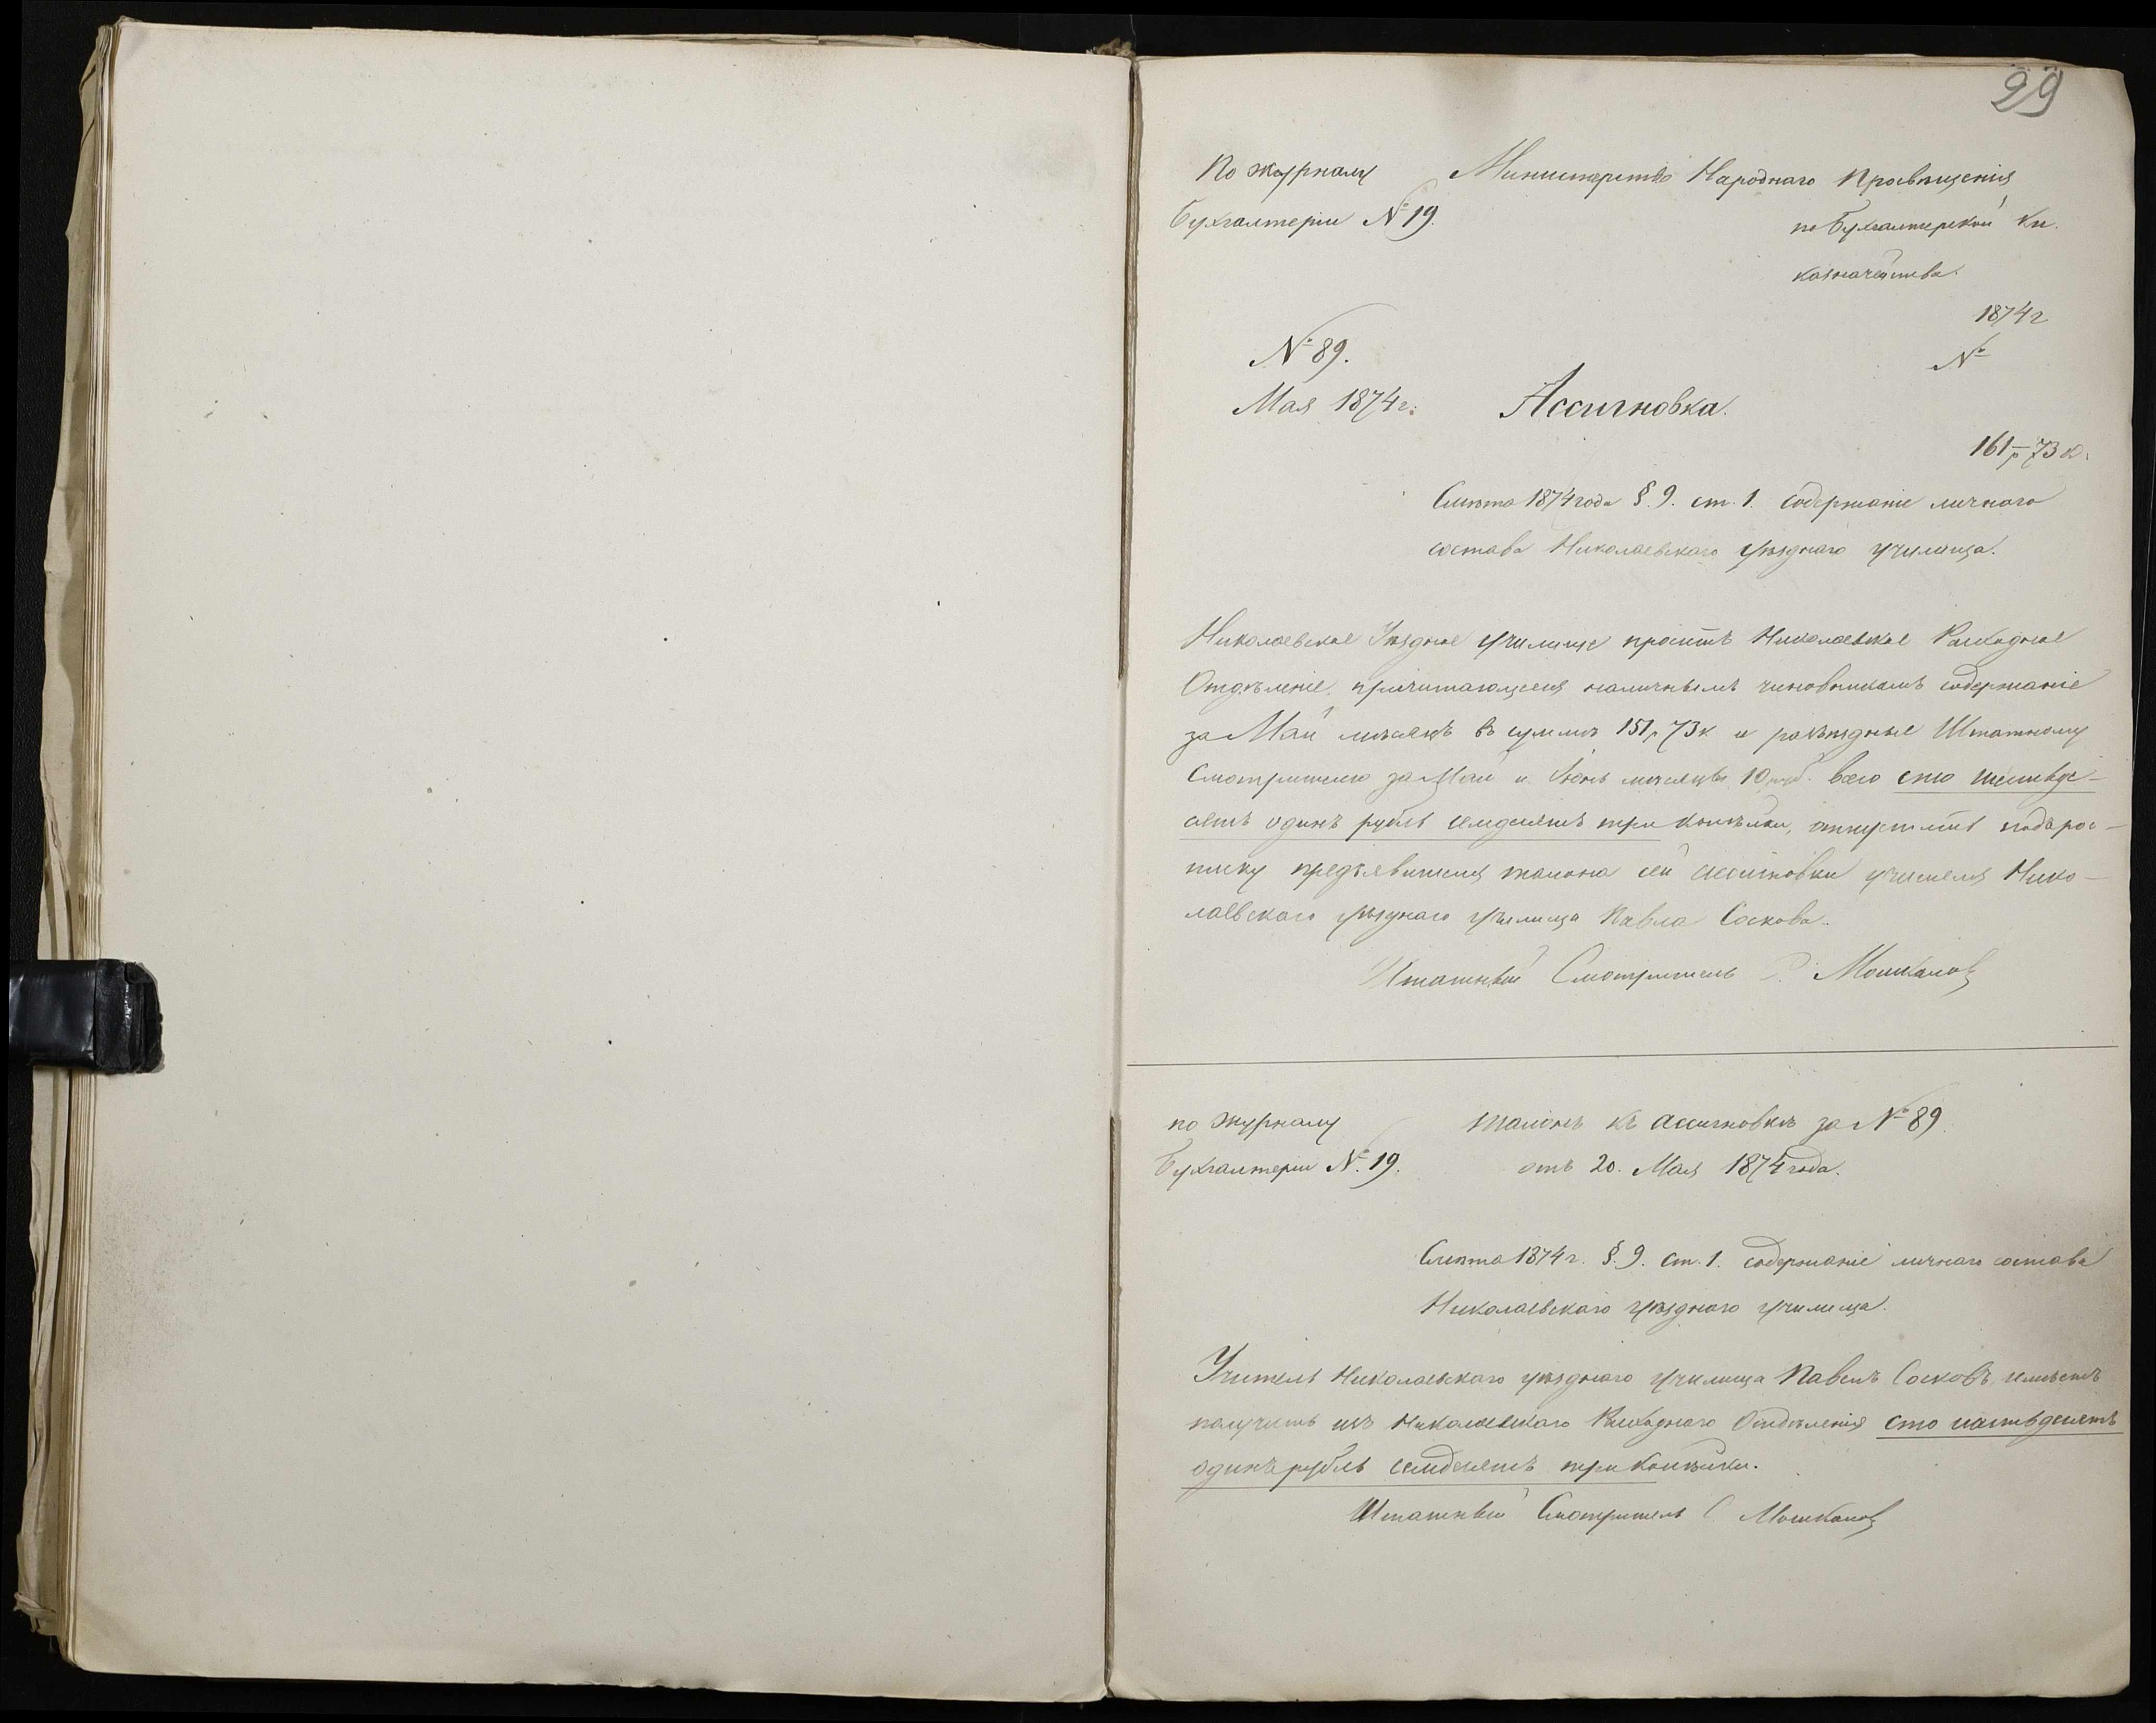 29
По журналу
Бухгалтеріи № 19.
Министерство Народнаго Просвѣщенія
по Бухгалтерской Кн.
казначейства.
1874 г
№
№ 89.
Мая 1874 г.
Ассигновка.
161 р 73 к.
Смѣта 1874 года §. 9. ст. 1. содержаніе личнаго
состава Николаевскаго уѣзднаго училища.
Николаевское Уѣздное училище проситъ Николаевское Расходное
Отдѣленіе, причитающееся наличнымъ чиновникамъ содержаніе
за Май мѣсяцъ въ суммѣ 151 р 73 к и разъѣздные Штатному
Смотрителю за Май и Іюнь мѣсяцы 10 руб. всего сто шестьде-
сятъ одинъ рубль семдесятъ три копѣйки, отпустить подъ рос-
писку предъявителя талона сей ассигновки учителя Нико-
лаевскаго уѣзднаго училища Павла Соскова.
Штатный Смотритель Мошкалов
по журналу
Бухгалтеріи №. 19.
талонъ къ ассигновкѣ за № 89
отъ 20. Мая 1874 года.
Смѣта 1874 г. §. 9. ст. 1. содержаніе личнаго состава
Николаевскаго уѣзднаго училища.
Учитель Николаевскаго уѣзднаго училища Павелъ Сосковъ имѣетъ
получить изъ Николаевскаго Расходнаго Отдѣленія сто шестьдесятъ
одинъ рубль семдесятъ три копѣйки.
Штатный Смотритель